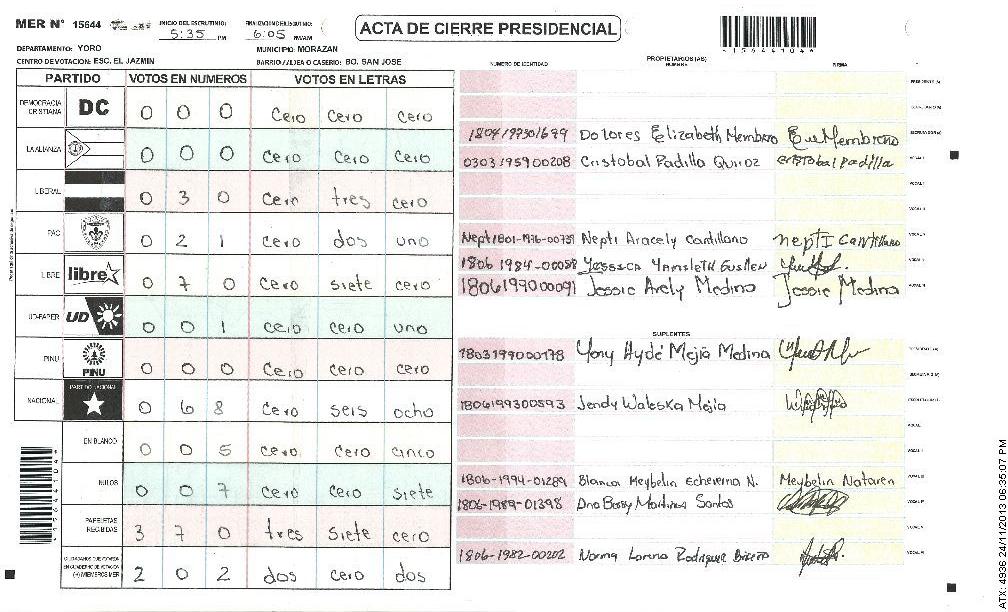 MER N° 15644
INICIO DEL ESCRUTINIO: 5:35 PM
FINALIZACION DEL ESCRUTINIO: 6:05 PM/AM
ACTA DE CIERRE PRESIDENCIAL
DEPARTAMENTO: YORO
MUNICIPIO: MORAZAN
CENTRO DE VOTACION: ESC. EL JAZMIN
BARRIO / LDEA O CASERIO: BO. SAN JOSE
PARTIDO VOTOS EN NUMEROS VOTOS EN LETRAS
NUMERO DE IDENTIDAD PROPIETARIOS (AS) NOMBRE FIRMA
DEMOCRACIA CRISTIANA DC 0 0 0 Cero Cero Cero
LA ALIANZA 0 0 0 Cero Cero Cero
LIBERAL 0 3 0 Cero tres cero
PAC 0 2 1 Cero dos uno
LIBRE libre 0 7 0 Cero siete cero
UD-FAPER UD 0 0 1 Cero cero uno
PINU PINU 0 0 0 Cero cero Cero
NACIONAL PARTIDO NACIONAL 0 6 8 Cero seis ocho
EN BLANCO 0 0 5 cero Cero cinco
NULOS 0 0 7 Cero Cero siete
PAPELETAS RECIBIDAS 3 7 0 tres siete cero
CIUDADANOS QUE VOTARON EN CUADERNO DE VOTACION (+) MIEMBROS MER 2 0 2 dos cero dos
Dolores Elizabeth Membreño
0303195900208 Cristobal Padilla Quiroz cristobal padilla
Nepti Aracely Cantillano nepti Cantillano
1806 1984-00058 Yessica
1806199000091 Jessie Arely Medina Jessie Medina
SUPLENTES
1803199000178 Yony Aydé Mejía Medina
1806199300593 Jendy Waleska Mejía
1806-1994-01289 Blanca Meybelin Echeverria N. Meybelin Nataren
1806-1989-01398 Martinez Santos
1806-1982-00202 Norma Lorena Rodriguez
ATX: 4936 24/11/2013 06:35:07 PM